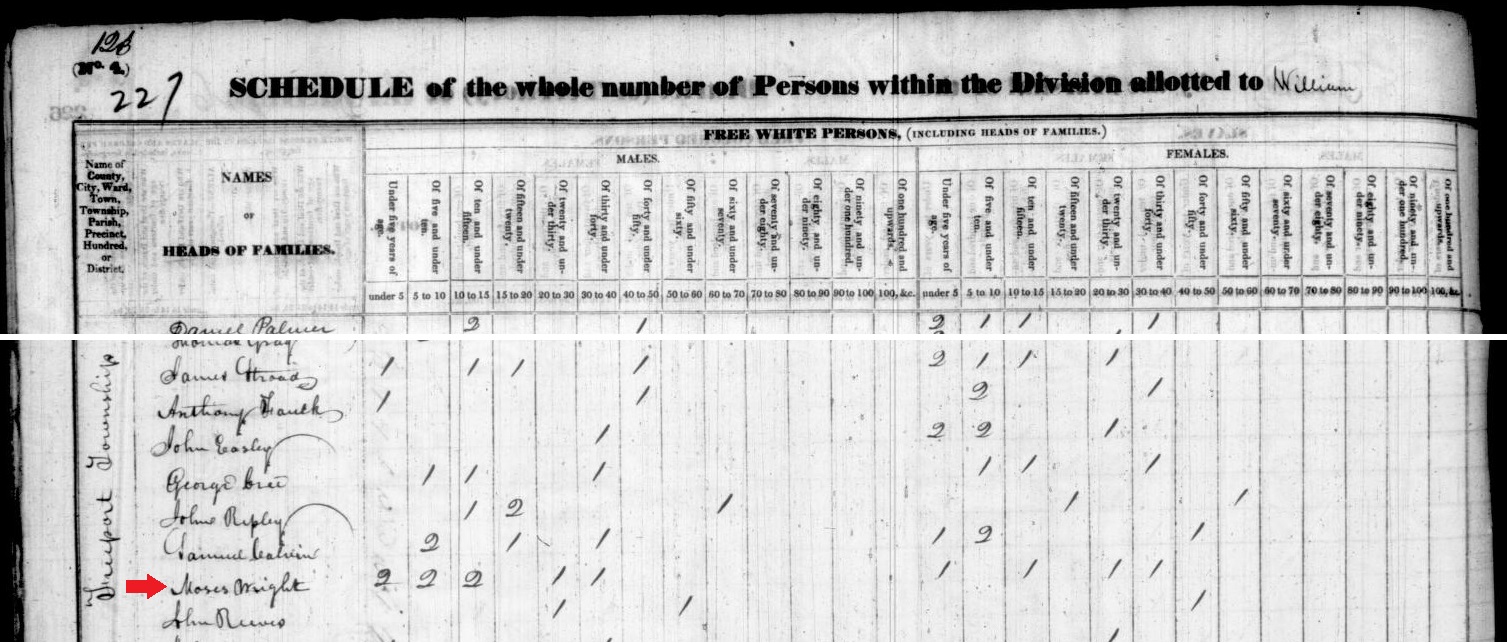 128
(No. 4.)
227
SCHEDULE of the whole number of Persons within the Division allotted to William
FREE WHITE PERSONS, (INCLUDING HEADS OF FAMILIES.)
MALES. FEMALES.
Name of County, City, Ward, Town, Township, Parish, Precinct, Hundred, or District.
NAMES
OF
HEADS OF FAMILIES.
Under five years of age.
Of five and under ten.
Of ten and under fifteen.
Of fifteen and under twenty.
Of twenty and under thirty.
Of thirty and under forty.
Of forty and under fifty.
Of fifty and under sixty.
Of sixty and under seventy.
Of seventy and under eighty.
Of eighty and under ninety.
Of ninety and under one hundred.
Of one hundred and upwards.
Under five years of age.
Of five and under ten.
Of ten and under fifteen.
Of fifteen and under twenty.
Of twenty and under thirty.
Of thirty and under forty.
Of forty and under fifty.
Of fifty and under sixty.
Of sixty and under seventy.
Of seventy and under eighty.
Of eighty and under ninety.
Of ninety and under one hundred.
Of one hundred and upwards.
under 5 5 to 10 10 to 15 15 to 20 20 to 30 30 to 40 40 to 50 50 to 60 60 to 70 70 to 80 80 to 90 90 to 100 100, &c. under 5 5 to 10 10 to 15 15 to 20 20 to 30 30 to 40 40 to 50 50 to 60 60 to 70 70 to 80 80 to 90 90 to 100 100, &c.
Freeport Township
Daniel Palmer 2 1 2 1 1 1
Thomas Gray
James 1 1 1 1 2 1 1 1
Anthony 1 1 2 1
John Easley 1 2 2 1
George Cree 1 1 1 1 1 1
John Ripley 1 2 1 1 1
Samuel 2 1 1 1 2 1
Moses Wright 2 2 2 1 1 1 1 1 1
John Reeves 1 1 1